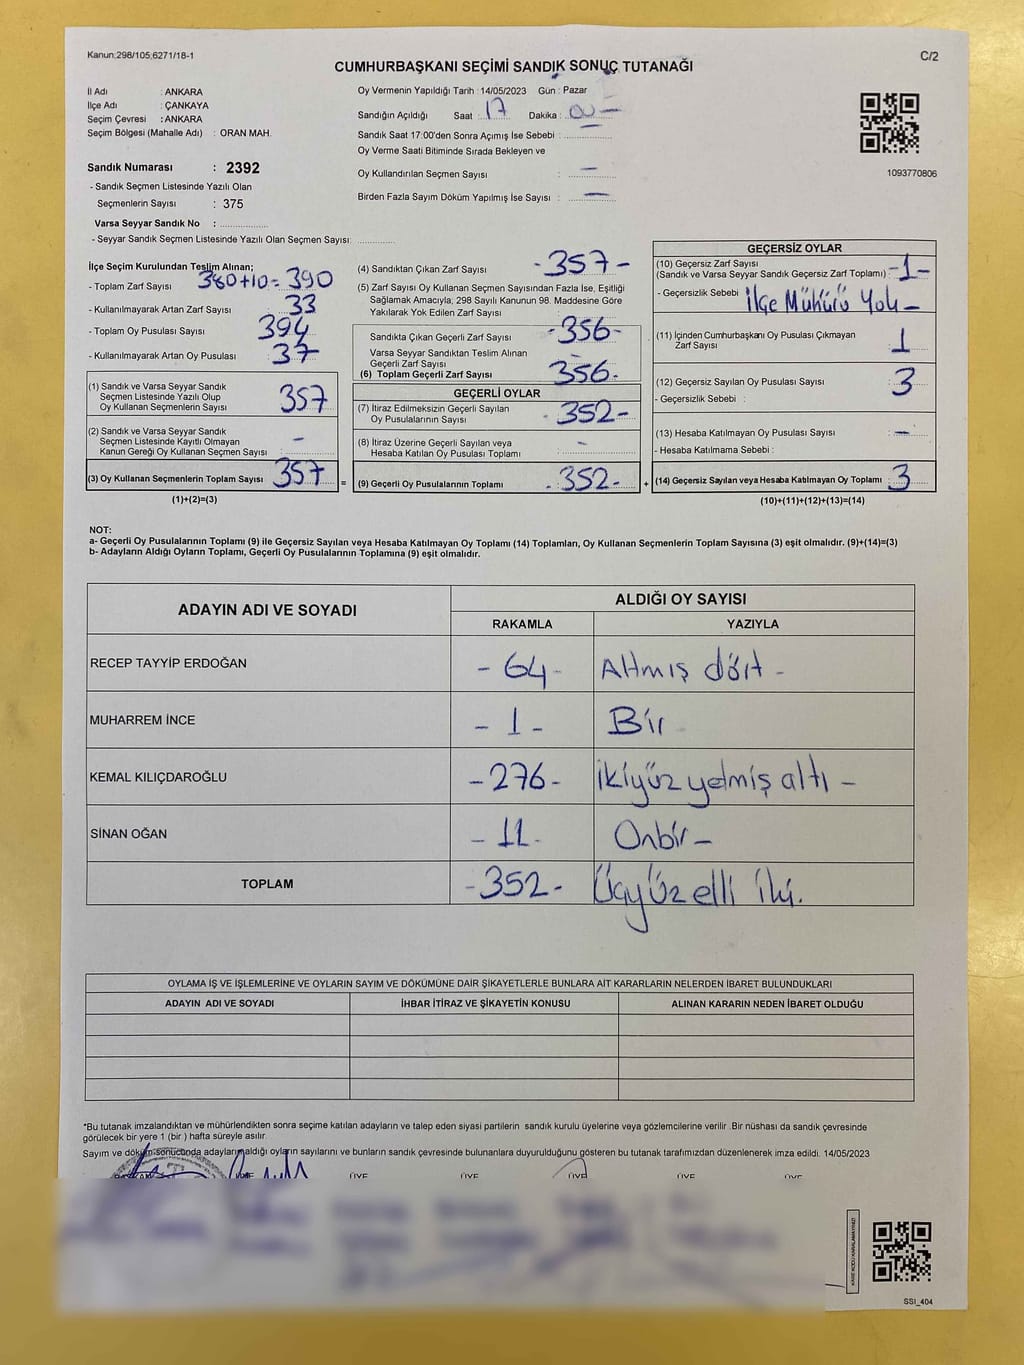 Kanun:298/105;6271/18-1
C/2
CUMHURBAŞKANI SEÇİMİ SANDIK SONUÇ TUTANAĞI
İl Adı : ANKARA
İlçe Adı : ÇANKAYA
Seçim Çevresi : ANKARA
Seçim Bölgesi (Mahalle Adı) : ORAN MAH.
Sandık Numarası : 2392
- Sandık Seçmen Listesinde Yazılı Olan
Seçmenlerin Sayısı : 375
Varsa Seyyar Sandık No :
- Seyyar Sandık Seçmen Listesinde Yazılı Olan Seçmen Sayısı:
Oy Vermenin Yapıldığı Tarih : 14/05/2023 Gün : Pazar
Sandığın Açıldığı Saat : 17 Dakika : 00 -
Sandık Saat 17:00'den Sonra Açımış İse Sebebi :
Oy Verme Saati Bitiminde Sırada Bekleyen ve
Oy Kullandırılan Seçmen Sayısı : -
Birden Fazla Sayım Döküm Yapılmış İse Sayısı : -
1093770806
İlçe Seçim Kurulundan Teslim Alınan;
- Toplam Zarf Sayısı : 380+10= 390
- Kullanılmayarak Artan Zarf Sayısı : 33
- Toplam Oy Pusulası Sayısı : 394
- Kullanılmayarak Artan Oy Pusulası : 37
(1) Sandık ve Varsa Seyyar Sandık
Seçmen Listesinde Yazılı Olup
Oy Kullanan Seçmenlerin Sayısı : 357
(2) Sandık ve Varsa Seyyar Sandık
Seçmen Listesinde Kayıtlı Olmayan
Kanun Gereği Oy Kullanan Seçmen Sayısı : -
(3) Oy Kullanan Seçmenlerin Toplam Sayısı : 357 =
(1)+(2)=(3)
(4) Sandıktan Çıkan Zarf Sayısı : -357-
(5) Zarf Sayısı Oy Kullanan Seçmen Sayısından Fazla İse, Eşitliği
Sağlamak Amacıyla, 298 Sayılı Kanunun 98. Maddesine Göre
Yakılarak Yok Edilen Zarf Sayısı :
Sandıkta Çıkan Geçerli Zarf Sayısı : -356-
Varsa Seyyar Sandıktan Teslim Alınan
Geçerli Zarf Sayısı : -
(6) Toplam Geçerli Zarf Sayısı : 356-
GEÇERLİ OYLAR
(7) İtiraz Edilmeksizin Geçerli Sayılan
Oy Pusulalarının Sayısı : 352-
(8) İtiraz Üzerine Geçerli Sayılan veya
Hesaba Katılan Oy Pusulası Toplamı : -
(9) Geçerli Oy Pusulalarının Toplamı : 352- +
GEÇERSİZ OYLAR
(10) Geçersiz Zarf Sayısı
(Sandık ve Varsa Seyyar Sandık Geçersiz Zarf Toplamı) : -1-
- Geçersizlik Sebebi : İlçe Mühürü Yok -
(11) İçinden Cumhurbaşkanı Oy Pusulası Çıkmayan
Zarf Sayısı : 1
(12) Geçersiz Sayılan Oy Pusulası Sayısı : 3
- Geçersizlik Sebebi :
(13) Hesaba Katılmayan Oy Pusulası Sayısı : -
- Hesaba Katılmama Sebebi :
(14) Geçersiz Sayılan veya Hesaba Katılmayan Oy Toplamı : 3
(10)+(11)+(12)+(13)=(14)
NOT:
a- Geçerli Oy Pusulalarının Toplamı (9) ile Geçersiz Sayılan veya Hesaba Katılmayan Oy Toplamı (14) Toplamları, Oy Kullanan Seçmenlerin Toplam Sayısına (3) eşit olmalıdır. (9)+(14)=(3)
b- Adayların Aldığı Oyların Toplamı, Geçerli Oy Pusulalarının Toplamına (9) eşit olmalıdır.
ADAYIN ADI VE SOYADI
ALDIĞI OY SAYISI
RAKAMLA YAZIYLA
RECEP TAYYİP ERDOĞAN - 64 - Altmış dört -
MUHARREM İNCE - 1 - Bir
KEMAL KILIÇDAROĞLU -276- ikiyüz yetmiş altı -
SİNAN OĞAN - 11 - Onbir -
TOPLAM -352- Üçyüz elli iki.
OYLAMA İŞ VE İŞLEMLERİNE VE OYLARIN SAYIM VE DÖKÜMÜNE DAİR ŞİKAYETLERLE BUNLARA AİT KARARLARIN NELERDEN İBARET BULUNDUKLARI
ADAYIN ADI VE SOYADI İHBAR İTİRAZ VE ŞİKAYETİN KONUSU ALINAN KARARIN NEDEN İBARET OLDUĞU
*Bu tutanak imzalandıktan ve mühürlendikten sonra seçime katılan adayların ve talep eden siyasi partilerin sandık kurulu üyelerine veya gözlemcilerine verilir .Bir nüshası da sandık çevresinde
görülecek bir yere 1 (bir ) hafta süreyle asılır.
Sayım ve döküm sonucunda adayların aldığı oyların sayılarını ve bunların sandık çevresinde bulunanlara duyurulduğunu gösteren bu tutanak tarafımızdan düzenlenerek imza edildi. 14/05/2023
ÜYE ÜYE ÜYE ÜYE ÜYE
SSI_404